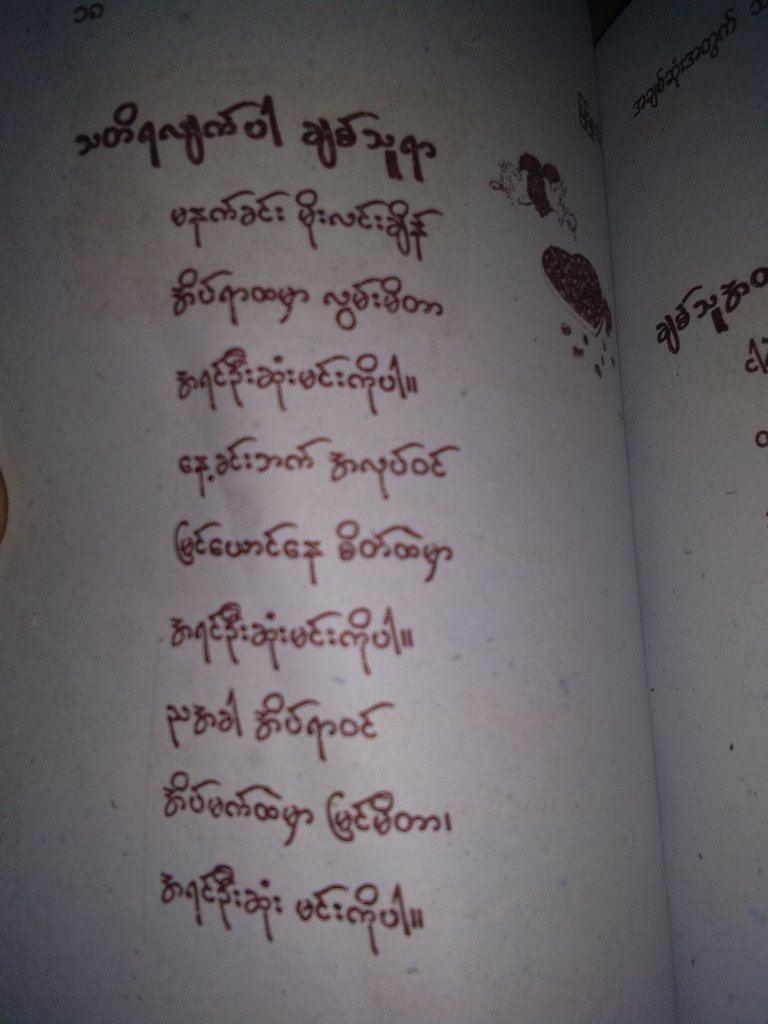 ၁၈
သတိရလျက်ပါ ချစ်သူရာ
မနက်ခင်း မိုးလင်းချိန်
အိပ်ရာထမှာ လွမ်းမိတာ
အရင်ဦးဆုံးမင်းကိုပါ။
နေ့ခင်းဘက် အလုပ်ဝင်
မြင်ယောင်နေ စိတ်ထဲမှာ
အရင်ဦးဆုံးမင်းကိုပါ။
ညအခါ အိပ်ရာဝင်
အိပ်မက်ထဲမှာ မြင်မိတာ၊
အရင်ဦးဆုံး မင်းကိုပါ။
အချစ်ဆုံးအတွက်